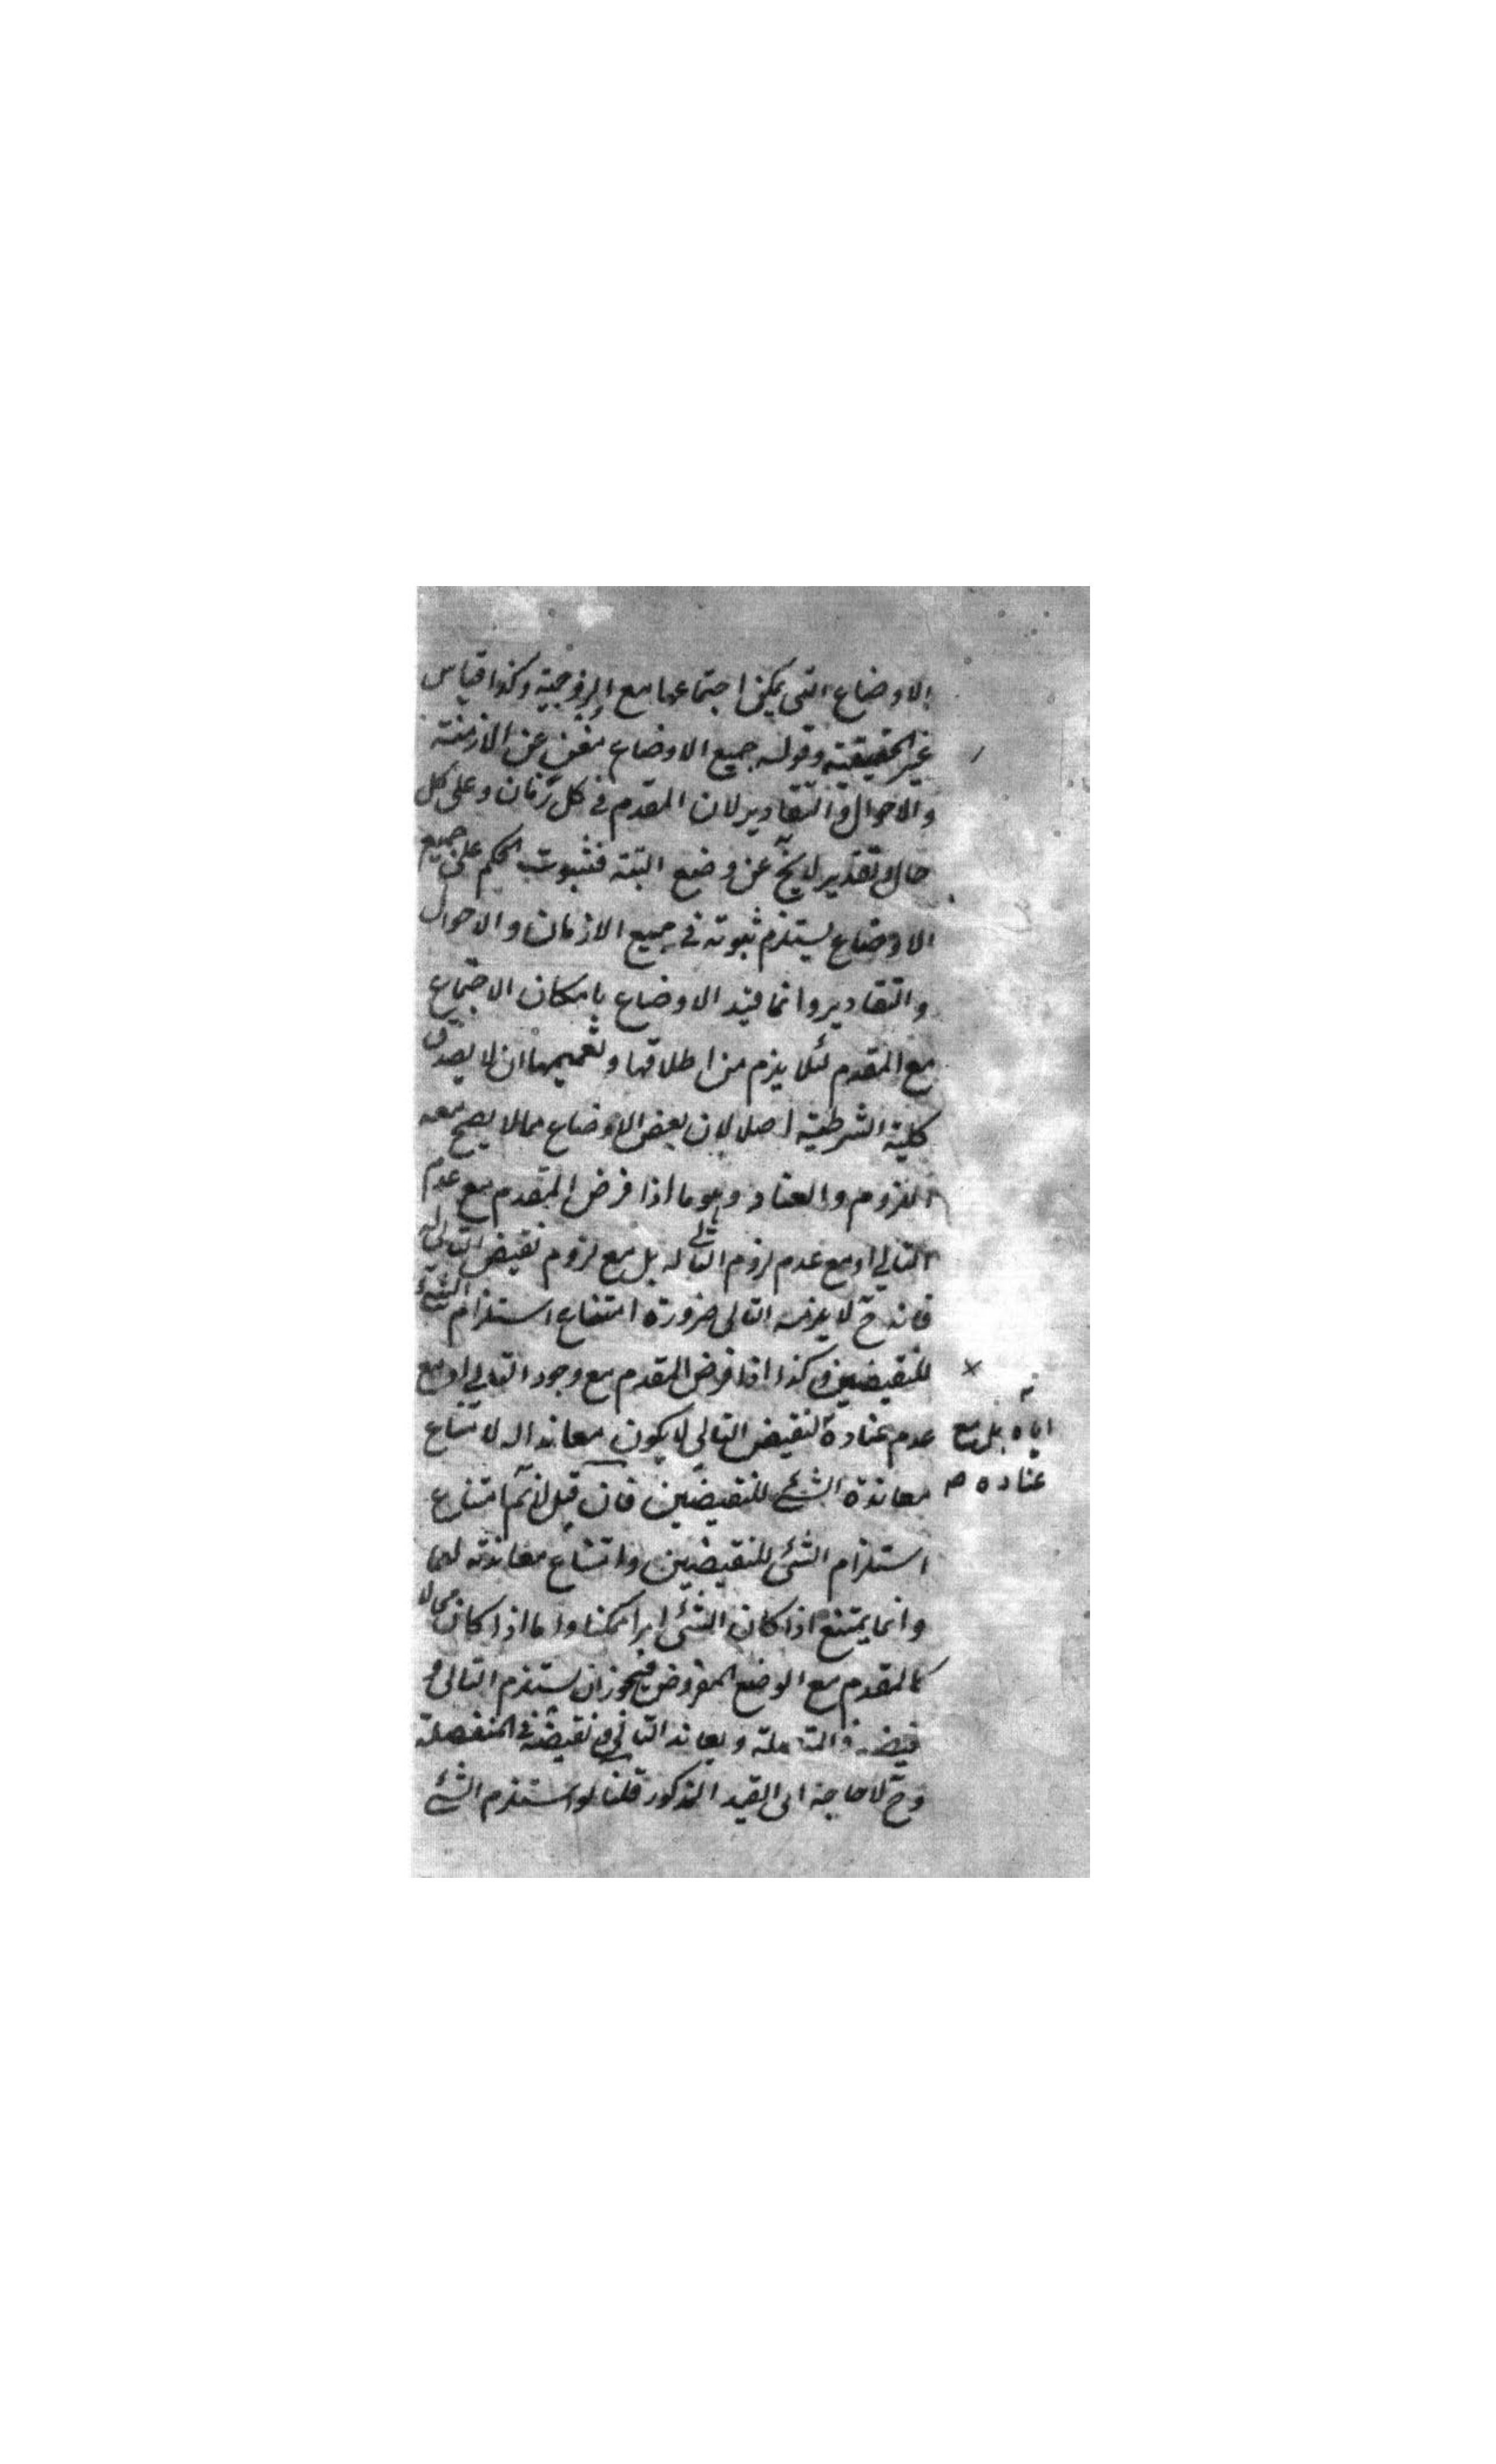 الاوضاع التى يمكن اجتماعها مع الزوجية وكذا قياس
غير الحقيقية وقوله جميع الاوضاع مغن عن الازمنة
والاحوال والتقادير لان المقدم فى كل زمان وعلى كل
حال وتقدير لا يخ عن وضع البتة فثبوت الحكم على جميع
الاوضاع يستلزم ثبوته فى جميع الازمان والاحوال
والتقادير وانما قيد الاوضاع بامكان الاجتماع
مع المقدم لئلا يلزم من اطلاقها وتعميمها ان لا يصدق
كلية الشرطية اصلا لان بعض الاوضاع مما لا يصح معه
اللزوم والعناد وهو ما اذا فرض المقدم مع عدم
التالي او مع عدم لزوم التالي له بل مع لزوم نقيض التالي له
فانه ح لا يلزمه التالى ضرورة امتناع استلزام الشئ
للنقيضين وكذا اذا فرض المقدم مع وجود التالي او مع
عدم عناده لنقيض التالي لا يكون معاندا له لامتناع
اياه بل مع
عناده صه
معاندة الشئ للنقيضين فان قيل لانم امتناع
استلزام الشئ للنقيضين وامتناع معاندته لهما
وانما يمتنع اذا كان الشئ امرا ممكنا واما اذا كان محالا
كالمقدم مع الوضع المفروض فيجوز ان يستلزم التالى و
نقيضه فى المتصلة ويعاند التالي ونقيضه فى المنفصلة
وح لا حاجة الى القيد المذكور قلنا لو استلزم الشئ